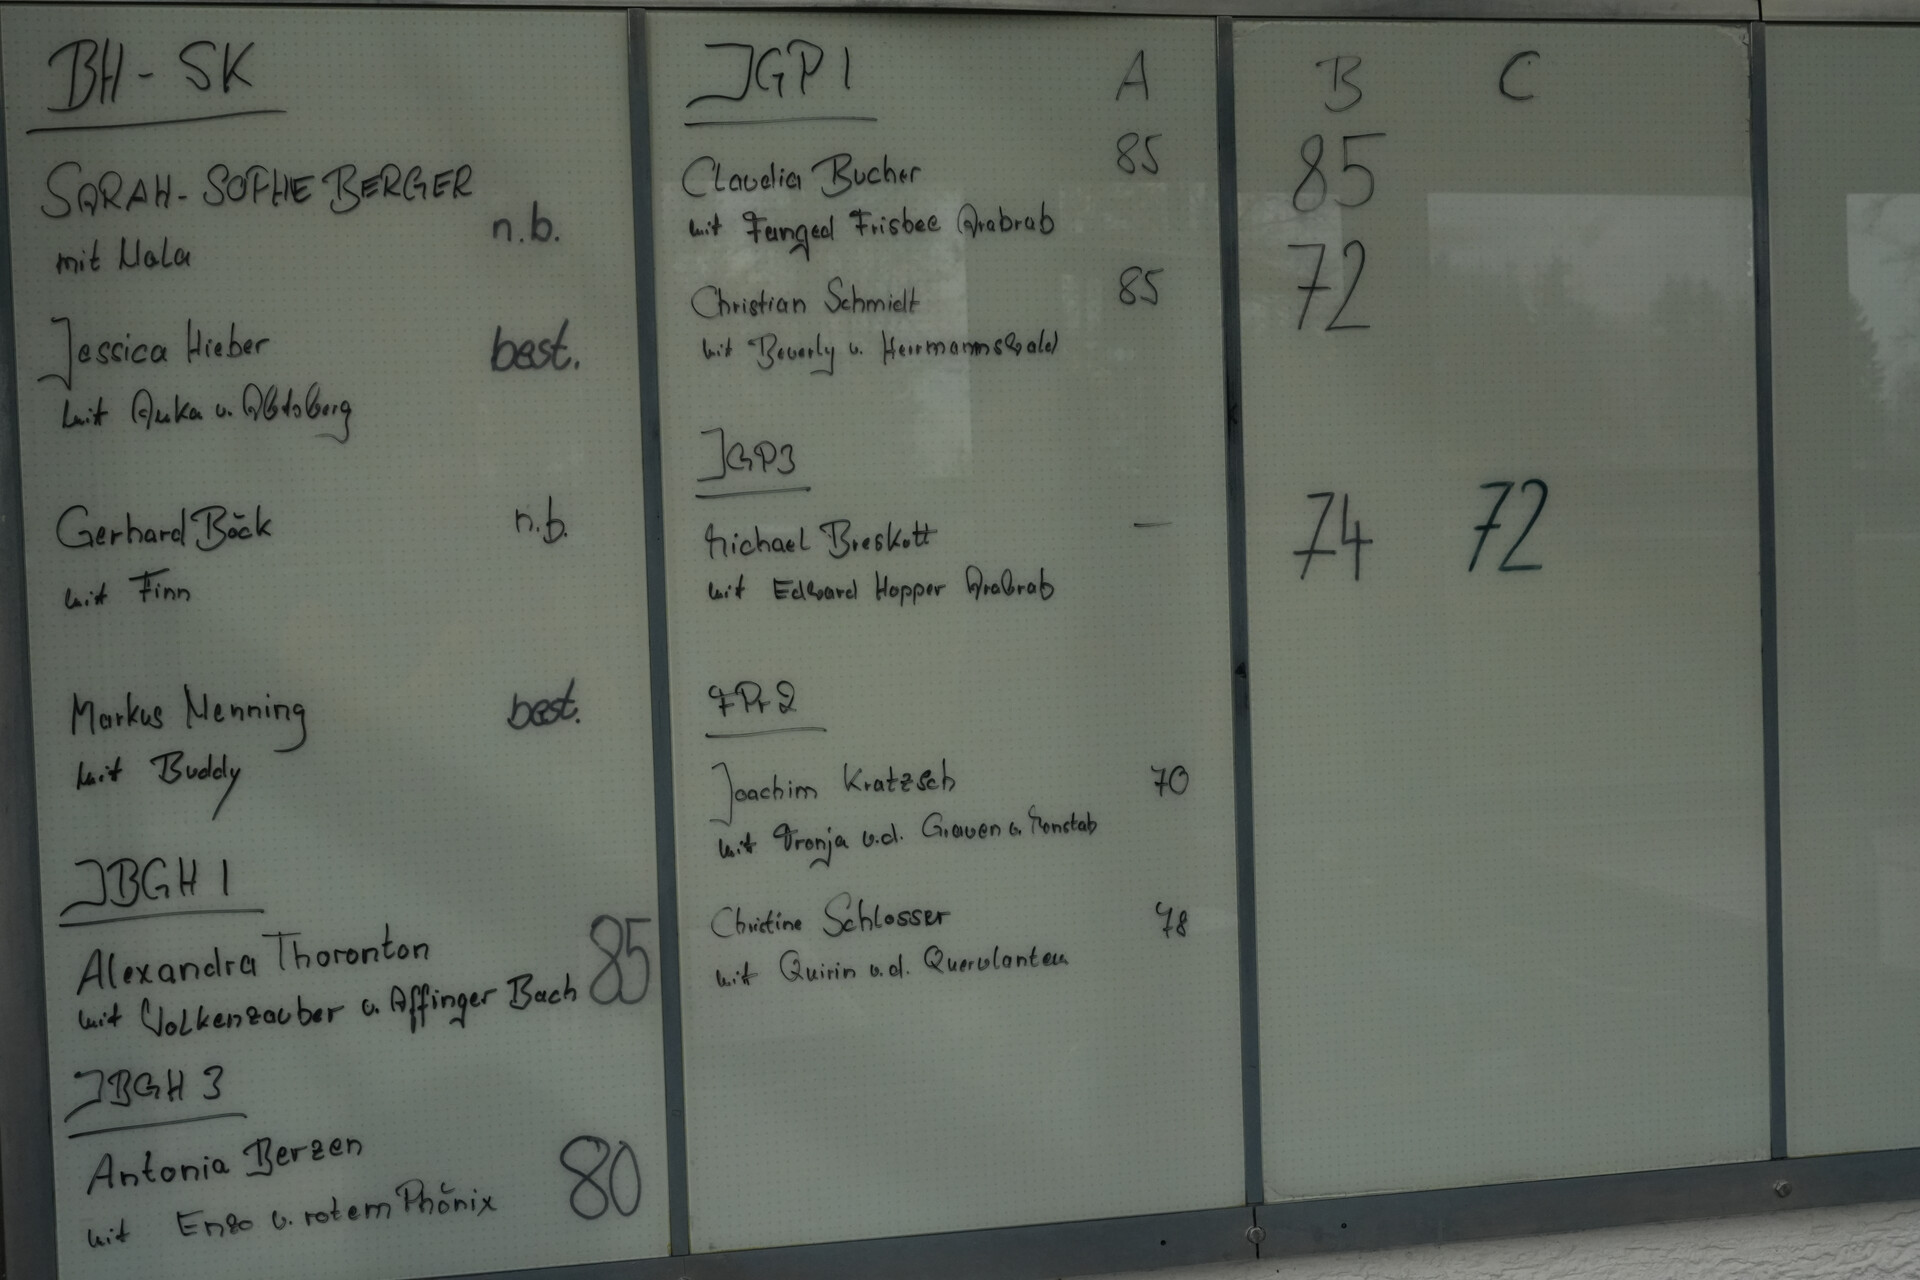 BH - SK
SARAH-SOPHIE BERGER
n.b.
mit Nala
Jessica Hieber best.
mit Anka v. Abtsberg
Gerhard Böck n.b.
mit Finn
Markus Nenning best.
mit Buddy
IBGH 1
Alexandra Thoronton 85
mit Wolkenzauber v. Affinger Bach
IBGH 3
Antonia Berzen 80
mit Enzo v. rotem Phönix
IGP 1 A B C
Claudia Bucher 85 85
mit Fanged Frisbee Arabrab
Christian Schmidt 85 72
mit Beverly v. Herrmannswald
IGP3
Michael Breskott — 74 72
mit Edward Hopper Arabrab
FPr 2
Joachim Kratzsch 70
mit Tronja v.d. Grauen v. Monstab
Christine Schlosser 78
mit Quirin v.d. Querulanten